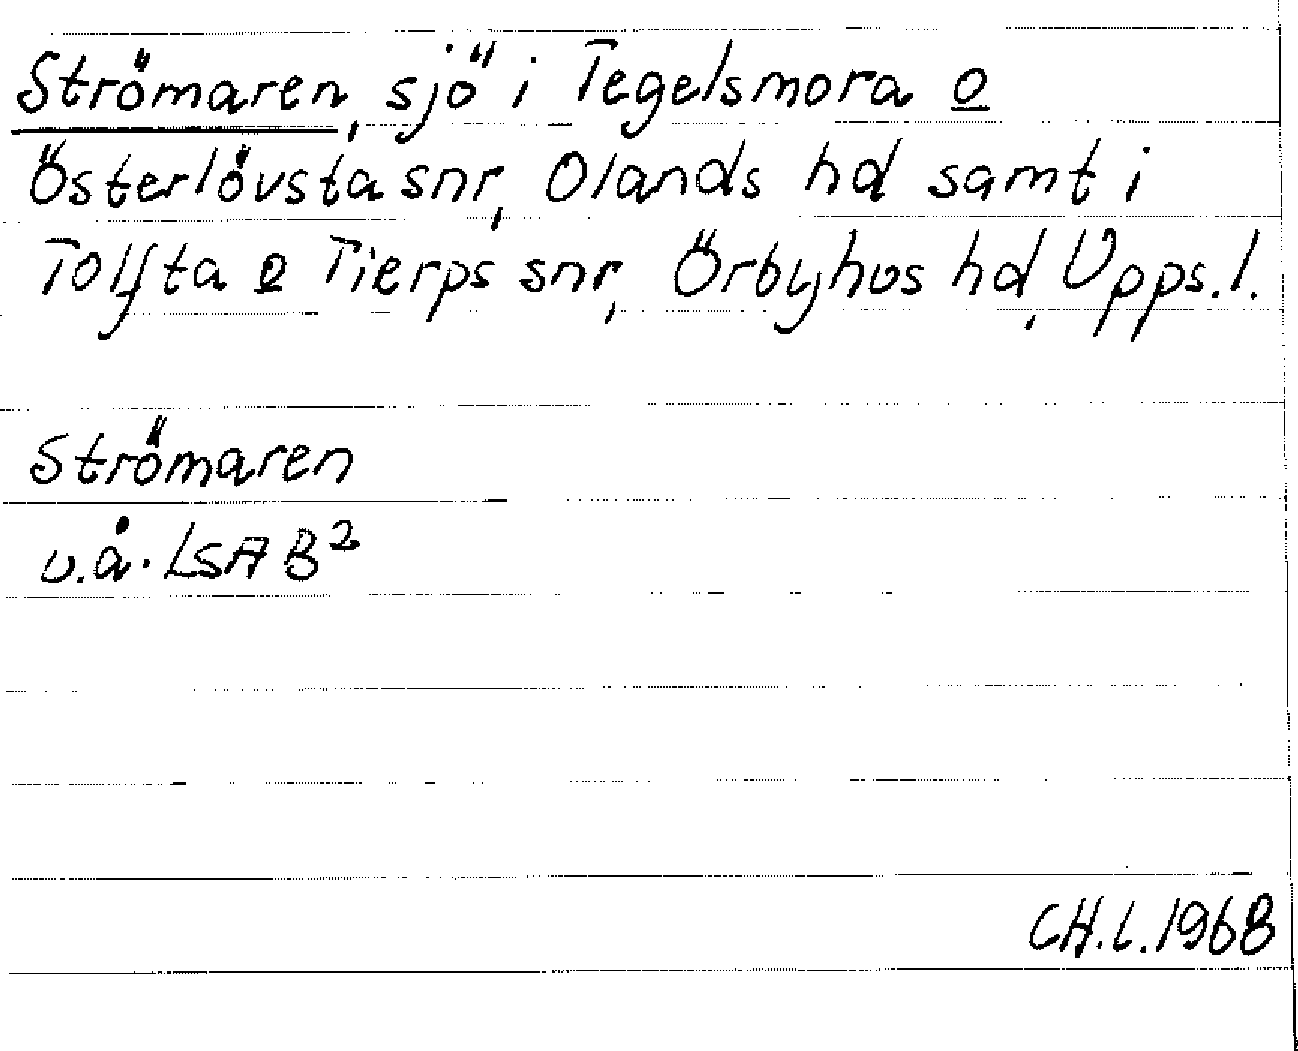 Strömaren, sjö i Tegelsmora o
Österlövsta snr, Olands hd samt i
Tolfta o Tierps snr, Örbyhus hd, Upps. l.
Strömaren
u.å. LSA B²
CH.L. 1968